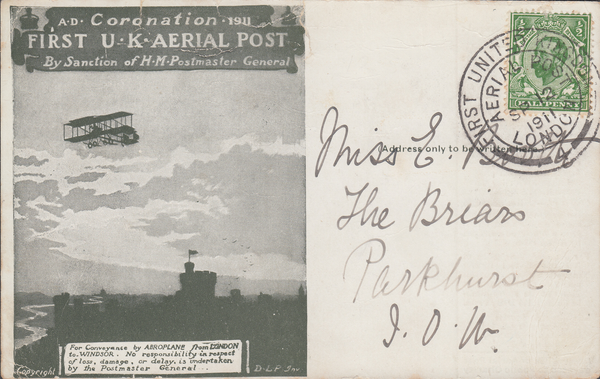 A·D· Coronation ·1911
FIRST U·K·AERIAL POST
By Sanction of H·M·Postmaster General
For Conveyance by AEROPLANE from LONDON
to WINDSOR. No responsibility in respect
of loss, damage, or delay, is undertaken
by the Postmaster General
Copyright
D·L·P Inv
FIRST UNITED KINGDOM
AERIAL POST
1911
LONDON
HALFPENNY
(Address only to be written here.)
Miss E.
The Briars
Parkhurst
I.O.W.